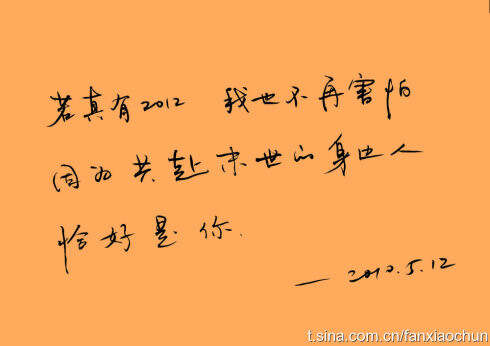 若真有2012 我也不再害怕
因为共赴末世的身边人
恰好是你.
— 2010.5.12
t.sina.com.cn/fanxiaochun